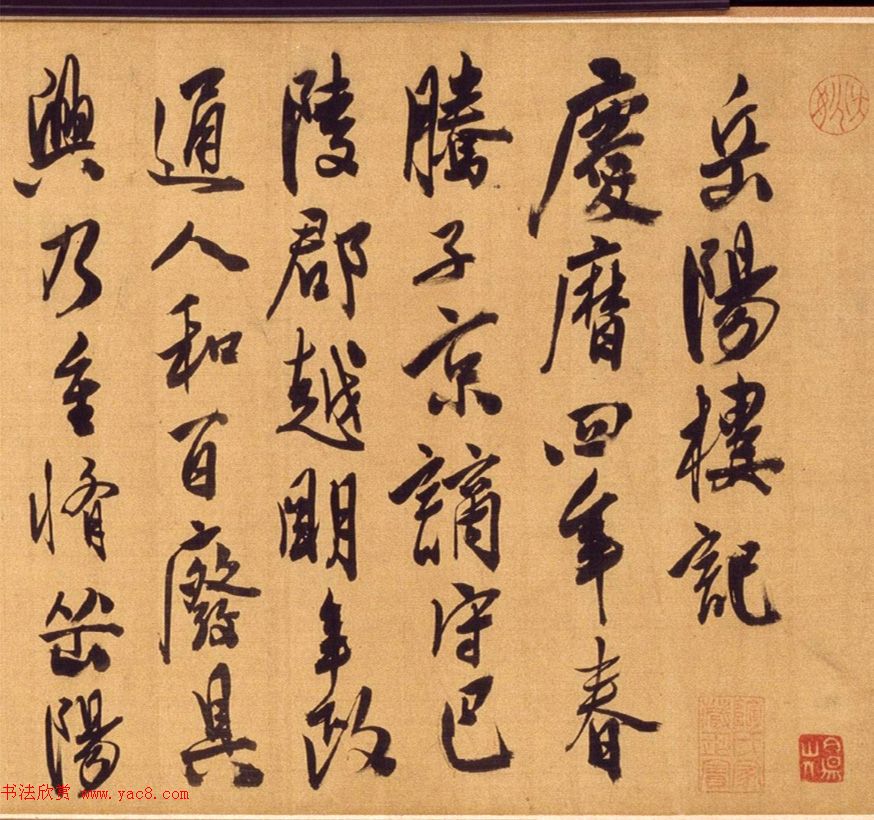 岳陽樓記
慶曆四年春
騰子京謫守巴
陵郡越明年政
通人和百廢具
興乃重脩岳陽
书法欣赏 www.yac8.com